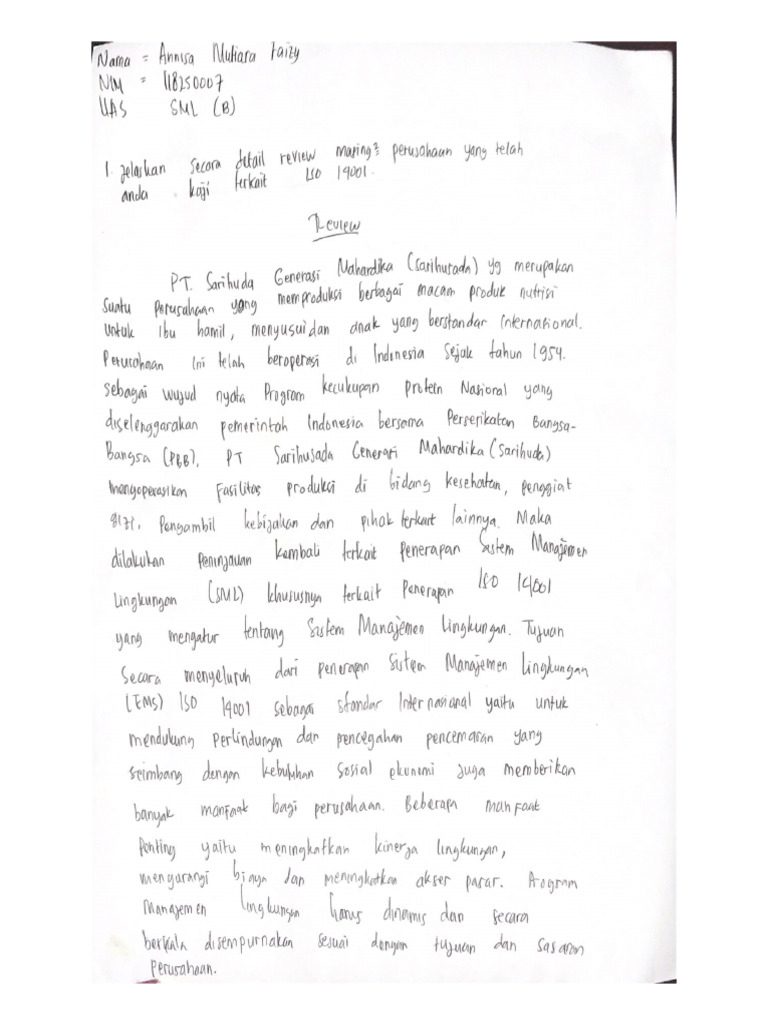 Nama = Annisa Mutiara Faizy
NIM = 118250007
UAS SML (B)
1. Jelaskan secara detail review masing2 perusahaan yang telah
anda kaji terkait ISO 14001.
Review
PT. Sarihuda Generasi Mahardika (Sarihusada) yg merupakan
suatu perusahaan yang memproduksi berbagai macam produk nutrisi
untuk ibu hamil, menyusui dan anak yang berstandar International.
Perusahaan ini telah beroperasi di Indonesia sejak tahun 1954.
sebagai wujud nyata Program kecukupan Protein Nasional yang
diselenggarakan pemerintah Indonesia bersama Perserikatan Bangsa-
Bangsa (PBB), PT Sarihusada Generasi Mahardika (Sarihuda)
mengoperasikan Fasilitas produksi di bidang kesehatan, penggiat
gizi, Pengambil kebijakan dan pihak terkait lainnya. Maka
dilakukan Peninjauan kembali terkait penerapan Sistem Manajemen
Lingkungan (SML) khususnya terkait Penerapan ISO 14001
yang mengatur tentang Sistem Manajemen Lingkungan. Tujuan
Secara menyeluruh dari penerapan Sistem Manajemen Lingkungan
(EMS) ISO 14001 sebagai standar Internasional yaitu untuk
mendukung Perlindungan dan pencegahan pencemaran yang
seimbang dengan kebutuhan sosial ekonomi juga memberikan
banyak manfaat bagi perusahaan. Beberapa manfaat
Penting yaitu meningkatkan kinerja lingkungan,
mengurangi biaya dan meningkatkan akses pasar. Program
Manajemen Lingkungan harus dinamis dan secara
berkala disempurnakan sesuai dengan tujuan dan sasaran
Perusahaan.